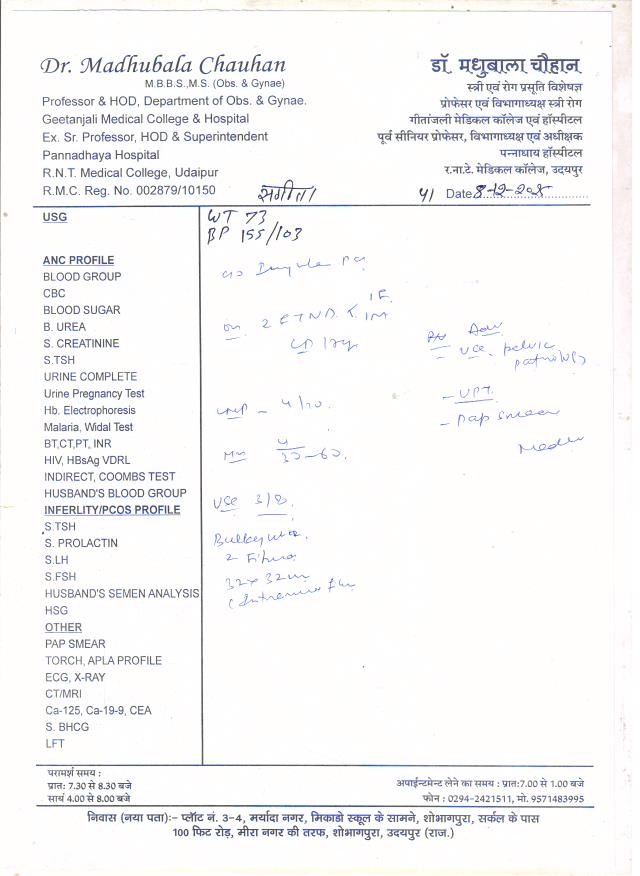 Dr. Madhubala Chauhan
M.B.B.S.,M.S. (Obs. & Gynae)
Professor & HOD, Department of Obs. & Gynae.
Geetanjali Medical College & Hospital
Ex. Sr. Professor, HOD & Superintendent
Pannadhaya Hospital
R.N.T. Medical College, Udaipur
R.M.C. Reg. No. 002879/10150
डॉ. मधुबाला चौहान
स्त्री एवं रोग प्रसूति विशेषज्ञ
प्रोफेसर एवं विभागाध्यक्ष स्त्री रोग
गीतांजली मेडिकल कॉलेज एवं हॉस्पीटल
पूर्व सीनियर प्रोफेसर, विभागाध्यक्ष एवं अधीक्षक
पन्नाधाय हॉस्पीटल
र.ना.टे. मेडिकल कॉलेज, उदयपुर
संगीता 41 Date 8-12-
USG
ANC PROFILE
BLOOD GROUP
CBC
BLOOD SUGAR
B. UREA
S. CREATININE
S.TSH
URINE COMPLETE
Urine Pregnancy Test
Hb. Electophoresis
Malaria, Widal Test
BT,CT,PT, INR
HIV, HBsAg VDRL
INDIRECT, COOMBS TEST
HUSBAND'S BLOOD GROUP
INFERLITY/PCOS PROFILE
S.TSH
S. PROLACTIN
S.LH
S.FSH
HUSBAND'S SEMEN ANALYSIS
HSG
OTHER
PAP SMEAR
TORCH, APLA PROFILE
ECG, X-RAY
CT/MRI
Ca-125, Ca-19-9, CEA
S. BHCG
LFT
WT 73
BP 155/103
2 FTND
LMP - 4/10.
30-60.
USG 3/8.
Bulky
2
32 x 32
Adv
USG pelvic
- UPT.
- Pap smear
परामर्श समय :
प्रातः 7.30 से 8.30 बजे
सायं 4.00 से 8.00 बजे
अपाईन्टमेन्ट लेने का समय : प्रातः7.00 से 1.00 बजे
फोन : 0294-2421511, मो. 9571483995
निवास (नया पता):- प्लॉट नं. 3-4, मर्यादा नगर, मिकाडो स्कूल के सामने, शोभागपुरा, सर्कल के पास
100 फिट रोड़, मीरा नगर की तरफ, शोभागपुरा, उदयपुर (राज.)